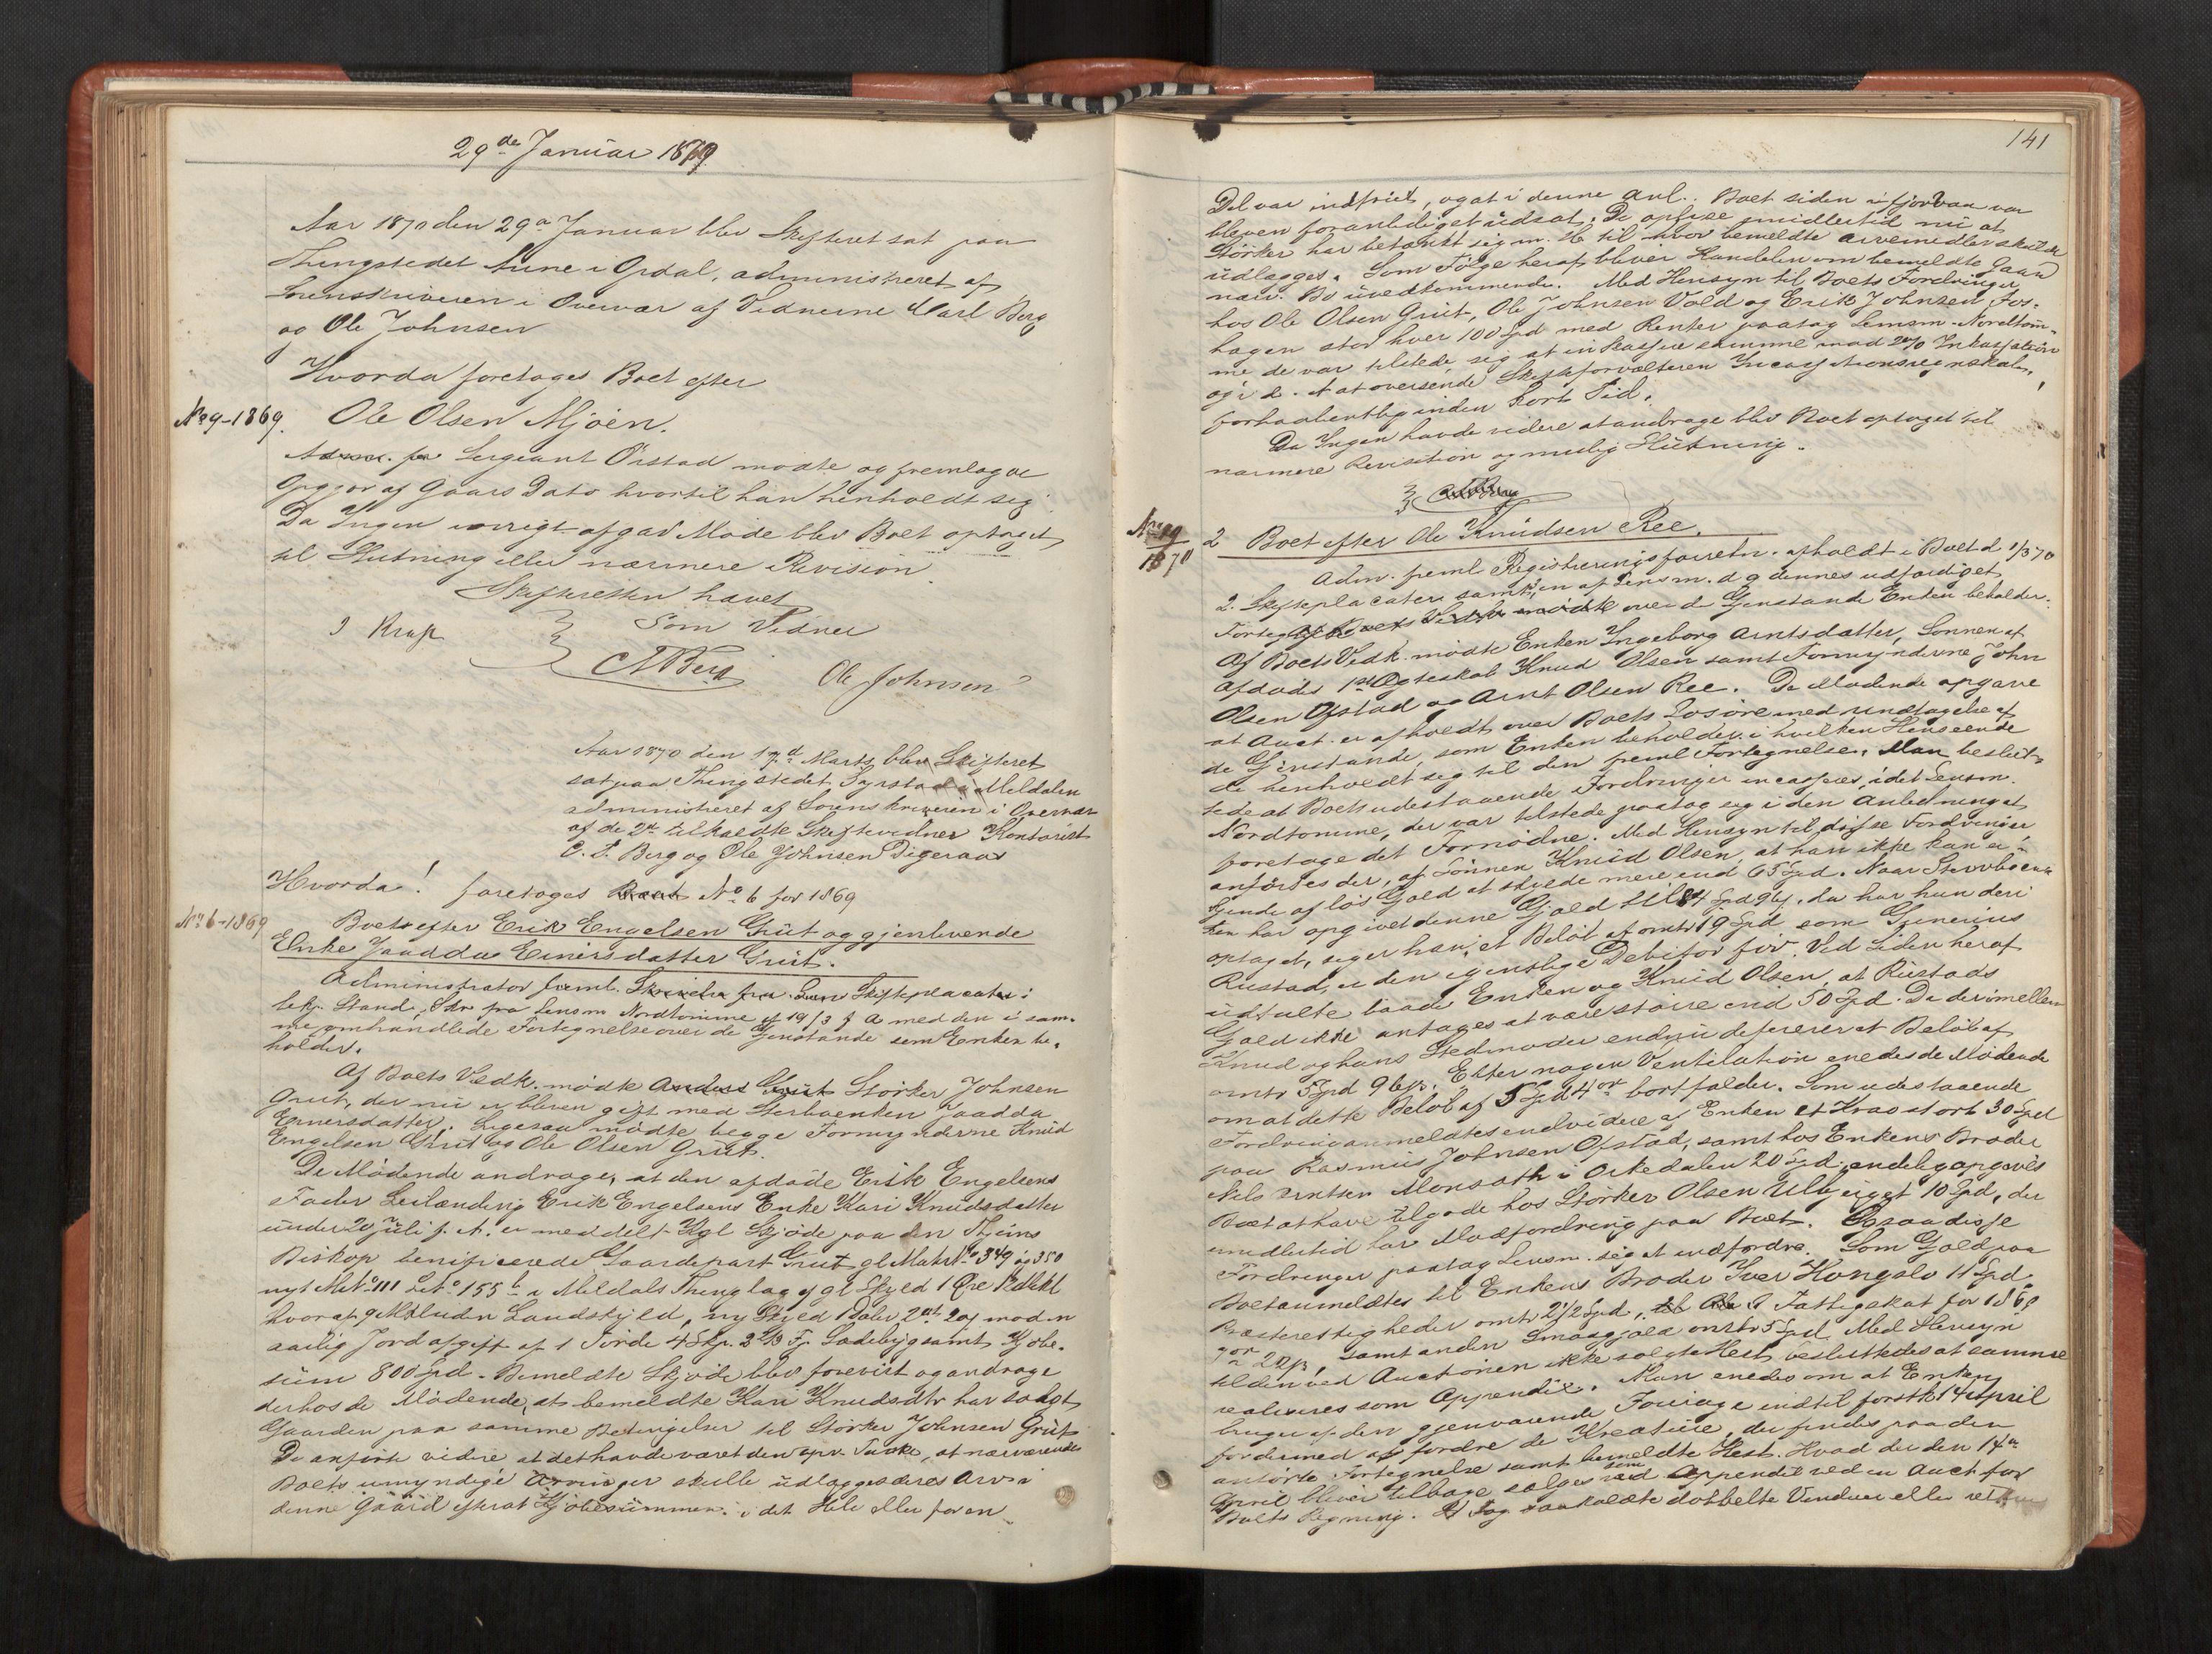 29de Januar 1879
Aar 1870 den 29a Januar blev Skifteret sat paa
Thingstedet Aune i Opdal, administreret af
Sorenskriveren i Overvær af Vidnerne Carl Berg
og Ole Johnsen
Hvorda foretoges Boet efter
No 9-1869. Ole Olsen Mjöen.
Sergeant Örstad mödte og fremlagde
Opgjör af Gaars Dato hvortil han henholdt sig.
Da Ingen övrigt afgav Möde blev Boet optaget
til Slutning eller nærmere Revision.
Skifteretten hævet
Som Vidner
C A Berg Ole Johnsen
Aar 1870 den 17d Marts blev Skifteret
sat paa Thingstedet Syrstad i Meldalen
administreret af Sorenskriveren i Overvær
af de 2de tilkaldte Skiftevidner Kontorist
C. A. Berg og Ole Johnsen Digeraas
Hvorda! foretoges Boet No 6 for 1869
No 6-1869 Boet efter Erik Engelsen Grut og gjenlevende
Enke Jaadda Einersdatter Grut.
Administrator freml. Skifteplacater i
bekj. Stand, Skr fra Lensm Nordtömme af 19/3 f A med den i sam-
me omhandlede Fortegnelse over de Gjenstande som Enken be-
holder.
Af Boets Vedk. mödte Anders Grut Störker Johnsen
Grut, der nu er bleven gift med Sterboenken Jaadda
Einersdatter. Ligesaa mödte begge Formynderne Knud
Engelsen Grut og Ole Olsen Grut.
De Mödende androge, at den afdöde Erik Engelsens
Fader Leilænding Erik Engelsens Enke Kari Knudsdatter
under 20 Juli f. A. er meddelt Kgl Skjöde paa den Thjems
Biskop benificerede Gaardepart Grut gl Matr No 349 og 350
nyt M No 111 LNo 155b i Meldals Thinglag af gl Skyld 1 Öre
hvoraf Landskyld, ny Skyld 1 Daler 2 ort 20 mod en
aarlig Jordafgift af 1 Tönde 4 Skp. 2 2/3 Fj. Sædebyg samt Kjöbe-
sum 800 Spd. Bemeldte Skjöde blev forevist og androge
derhos de Mödende, at bemeldte Kari Knudsdtr har solgt
Gaarden paa samme Betingelser til Störker Johnsen Grut
De anförte videre at det havde været den opr. Tanke, at nærværende
Boets umyndige Arvinger skulle udlægges deres Arv i
denne Gaard efterat Kjöbesummen i det Hele eller for en
141
Del var indfriet, og at i denne Anl. Boet siden ifjorvaar var
bleven foranlediget udsat. De opgive imidlertid nu at
Störker har betænkt sig m. H. til hvor bemeldte Arvemidler skulde
udlægges. Som Fölge heraf bliver Handelen om bemeldte Gaard
nærv. Bo uvedkommende. Med Hensyn til Boets Fordringer
hos Ole Olsen Grut, Ole Johnsen Vold og Erik Johnsen Fos-
hagen stor hver 100 Spd med Renter paatog Lensm. Nordtöm-
me der var tilstede, sig at inkassere samme mod 2% Inkassation
og i d. A at oversende Skifteforvalteren Incassationsregnskabet,
forhaabentlig inden kort Tid.
Da Ingen havde videre at andrage blev Boet optaget til
nærmere Revision og mulig Slutning.
No 19/1870 2 Boet efter Ole Knudsen Ree.
Adm. freml Registreringsforretn. afholdt i Boet d 1/3 70
2. Skifteplacater samt en af Lensm. d 9 dennes udfærdiget
Forteg over de Gjenstande Enken beholder.
Af Boets Vedk. mödte Enken Ingeborg Arntsdatter, Sönnen af
Afdödes 1ste Ægteskab Knud Olsen samt Formynderne John
Olsen Ofstad og Arnt Olsen Ree. De Mödende opgave
at Auct. er afholdt over Boets Lösöre med Undtagelse af
de Gjenstande, som Enken beholder i hvilken Henseende
de henholdt sig til den freml Fortegnelse. Man beslut-
tede at Boets udestaaende Fordringer incasseres, idet Lensm.
Nordtömme, der var tilstede paatog sig i den Anledning at
foretage det Fornödne. Med Hensyn til disse Fordringer
anförtes der, af Sönnen Knud Olsen, at han ikke kan er-
kjende af lös Gjæld at skylde mere end 65 Spd. Naar Stervboen-
ken har opgivet denne Gjæld til 84 Spd 96, da har hun deri
optaget, siger han, et Belöb af omtr 19 Spd som
Rustad, er den egentlige Debitor for. Ved Siden heraf
udtalte baade Enken og Knud Olsen, at Rustads
Gjæld ikke antages at være större end 50 Spd. Da derimellem
Knud og hans Stedmoder endnu et Belöb af
omtr 5 Spd 96 β. Efter nogen Ventilation enedes de Mödende
om at dette Belöb af 5 Spd 4 ort bortfalder. Som udestaaende
Fordring anmeldtes endvidere af Enken et Krav stort 30 Spd
paa Rasmus Johnsen Ofstad, samt hos Enkens Broder
Nils Arntsen Monsath i Orkedalen 20 Spd, endelig opgaves
Boet at have tilgode hos Störker Olsen 10 Spd, der
imidlertid har Modfordring paa Boet. Ogsaa disse
Fordringer paatog Lensm. sig at indfordre. Som Gjæld paa
Boet anmeldtes til Enkens Broder Iver Hongslo 11 Spd,
Præsterettigheder omtr 2 1/2 Spd, Fattigskat for 1869
20 β, samt anden Smaagjæld omtr 5 Spd. Med Hensyn
til den ved Auctionen ikke solgte Hest besluttedes at samme
realiseres som Appendix. Man enedes om at Enken
bruger af den gjenværende Fourage indtil förstk 14 April
for dermed at fordre de Kreature, der findes paa den
anförte Fortegnelse samt bemeldte Hest. Hvad der den 14de
April bliver tilbage sælges som Appendix ved en Auct for
Boets Regning. saakaldte dobbelte Venduer eller